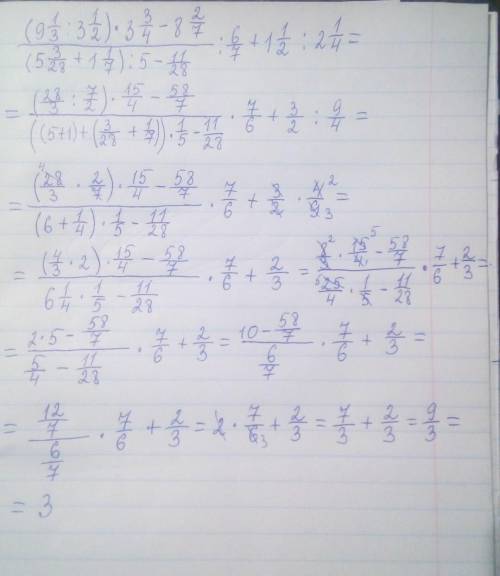 (9 1/3 : 3 1/2) · 3 3/4 − 8 2/7 / (5 3/28 + 1 1/7) : 5 − 11/28 : 6/7 + 1 1/2 : 2 1/4 =
= (28/3 : 7/2) · 15/4 − 58/7 / ((5+1) + (3/28 + 1/7)) · 1/5 − 11/28 · 7/6 + 3/2 : 9/4 =
= (⁴28/3 · 2/7) · 15/4 − 58/7 / (6 + 1/4) · 1/5 − 11/28 · 7/6 + 3/2 · 4²/9₃ =
= (4/3 · 2) · 15/4 − 58/7 / 6 1/4 · 1/5 − 11/28 · 7/6 + 2/3 = 8²/3 · 15⁵/4 − 58/7 / ⁵25/4 · 1/5 − 11/28 · 7/6 + 2/3 =
= 2·5 − 58/7 / 5/4 − 11/28 · 7/6 + 2/3 = 10 − 58/7 / 6/7 · 7/6 + 2/3 =
= 12/7 / 6/7 · 7/6 + 2/3 = 2 · 7/6₃ + 2/3 = 7/3 + 2/3 = 9/3 =
= 3